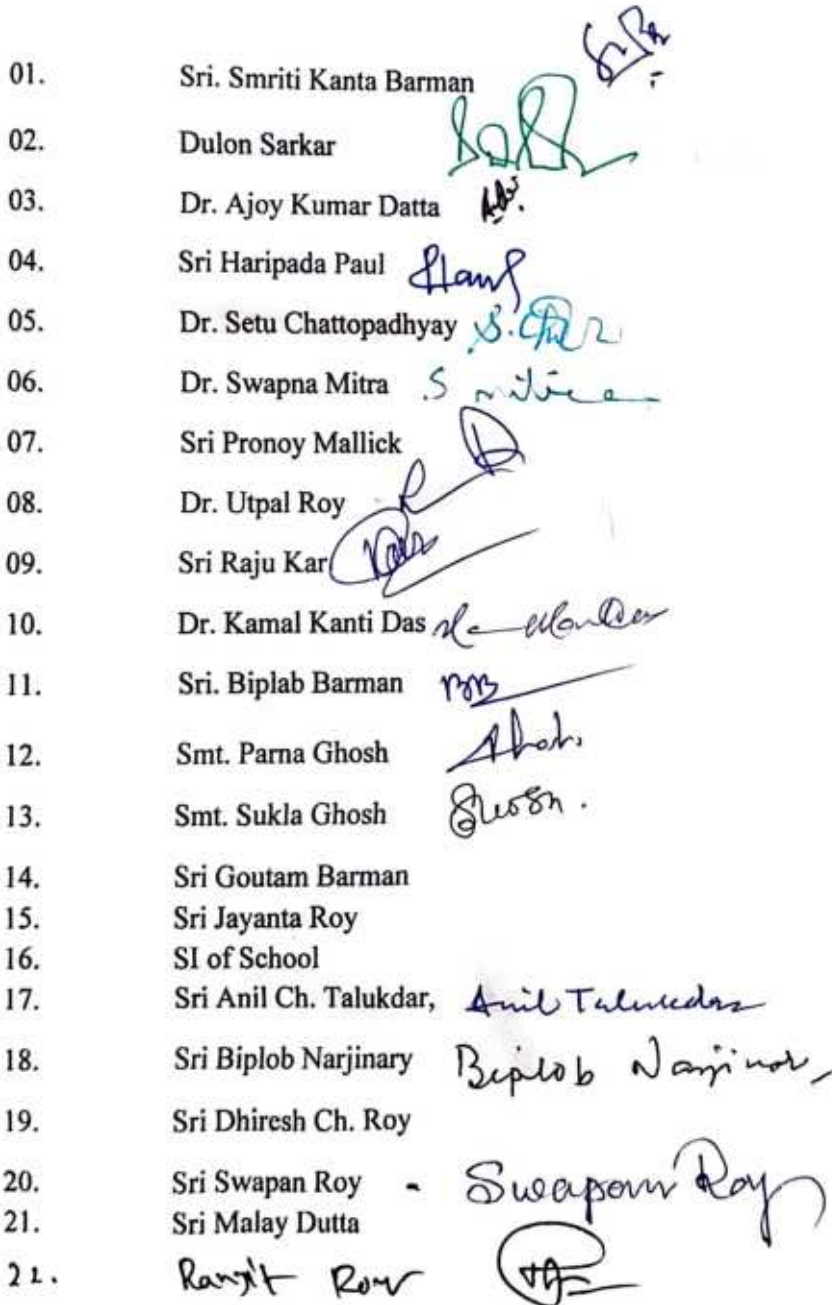 01. Sri. Smriti Kanta Barman
02. Dulon Sarkar
03. Dr. Ajoy Kumar Datta
04. Sri Haripada Paul
05. Dr. Setu Chattopadhyay
06. Dr. Swapna Mitra S mitra
07. Sri Pronoy Mallick
08. Dr. Utpal Roy
09. Sri Raju Kar
10. Dr. Kamal Kanti Das
11. Sri. Biplab Barman BB
12. Smt. Parna Ghosh
13. Smt. Sukla Ghosh
14. Sri Goutam Barman
15. Sri Jayanta Roy
16. SI of School
17. Sri Anil Ch. Talukdar, Anil Talukdar
18. Sri Biplob Narjinary Biplob Narjinary
19. Sri Dhiresh Ch. Roy
20. Sri Swapan Roy - Swapan Roy
21. Sri Malay Dutta
22. Ranjit Roy